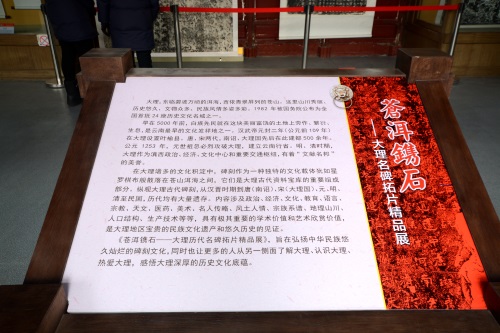 苍洱镌石
——大理名碑拓片精品展
大理，东临碧波万顷的洱海，西倚秀翠屏列的苍山。这里山川秀丽，
历史悠久，文物众多，民族风情多姿多彩，1982 年被国务院公布为全
国首批 24 座历史文化名城之一。
早在 5000 年前，白族先民就在这块美丽富饶的土地上劳作、繁衍、
生息，是云南最早的文化发祥地之一。汉武帝元封二年（公元前 109 年）
在大理设置叶榆县。唐、宋时代，南诏、大理国先后在此建都 500 余年，
公元 1253 年，元世祖忽必烈攻破大理，建立云南行省。明、清时期，
大理作为滇西政治、经济、文化中心和重要交通枢纽，有着“文献名邦”
的美誉。
在大理诸多的文化积淀中，碑刻作为一种独特的文化载体犹如星
罗棋布般散落在苍山洱海之间。它们是大理古代资料宝库的重要组成
部分，纵观大理古代碑刻，从汉晋时期到唐（南诏）、宋（大理国）、元、明、
清至民国，历代均有大量遗存。内容涉及政治、经济、文化、教育、语言、
宗教、天文、医药、美术、名人传略、风土人情、宗族系谱、地理山川、
人口结构、生产技术等等，具有极其重要的学术价值和艺术欣赏价值，
是大理地区宝贵的民族文化遗产和悠久历史的见证。
《苍洱镌石——大理历代名碑拓片精品展》，旨在弘扬中华民族悠
久灿烂的碑刻文化，同时也让更多的人从另一侧面了解大理、认识大理、
热爱大理，感悟大理深厚的历史文化底蕴。